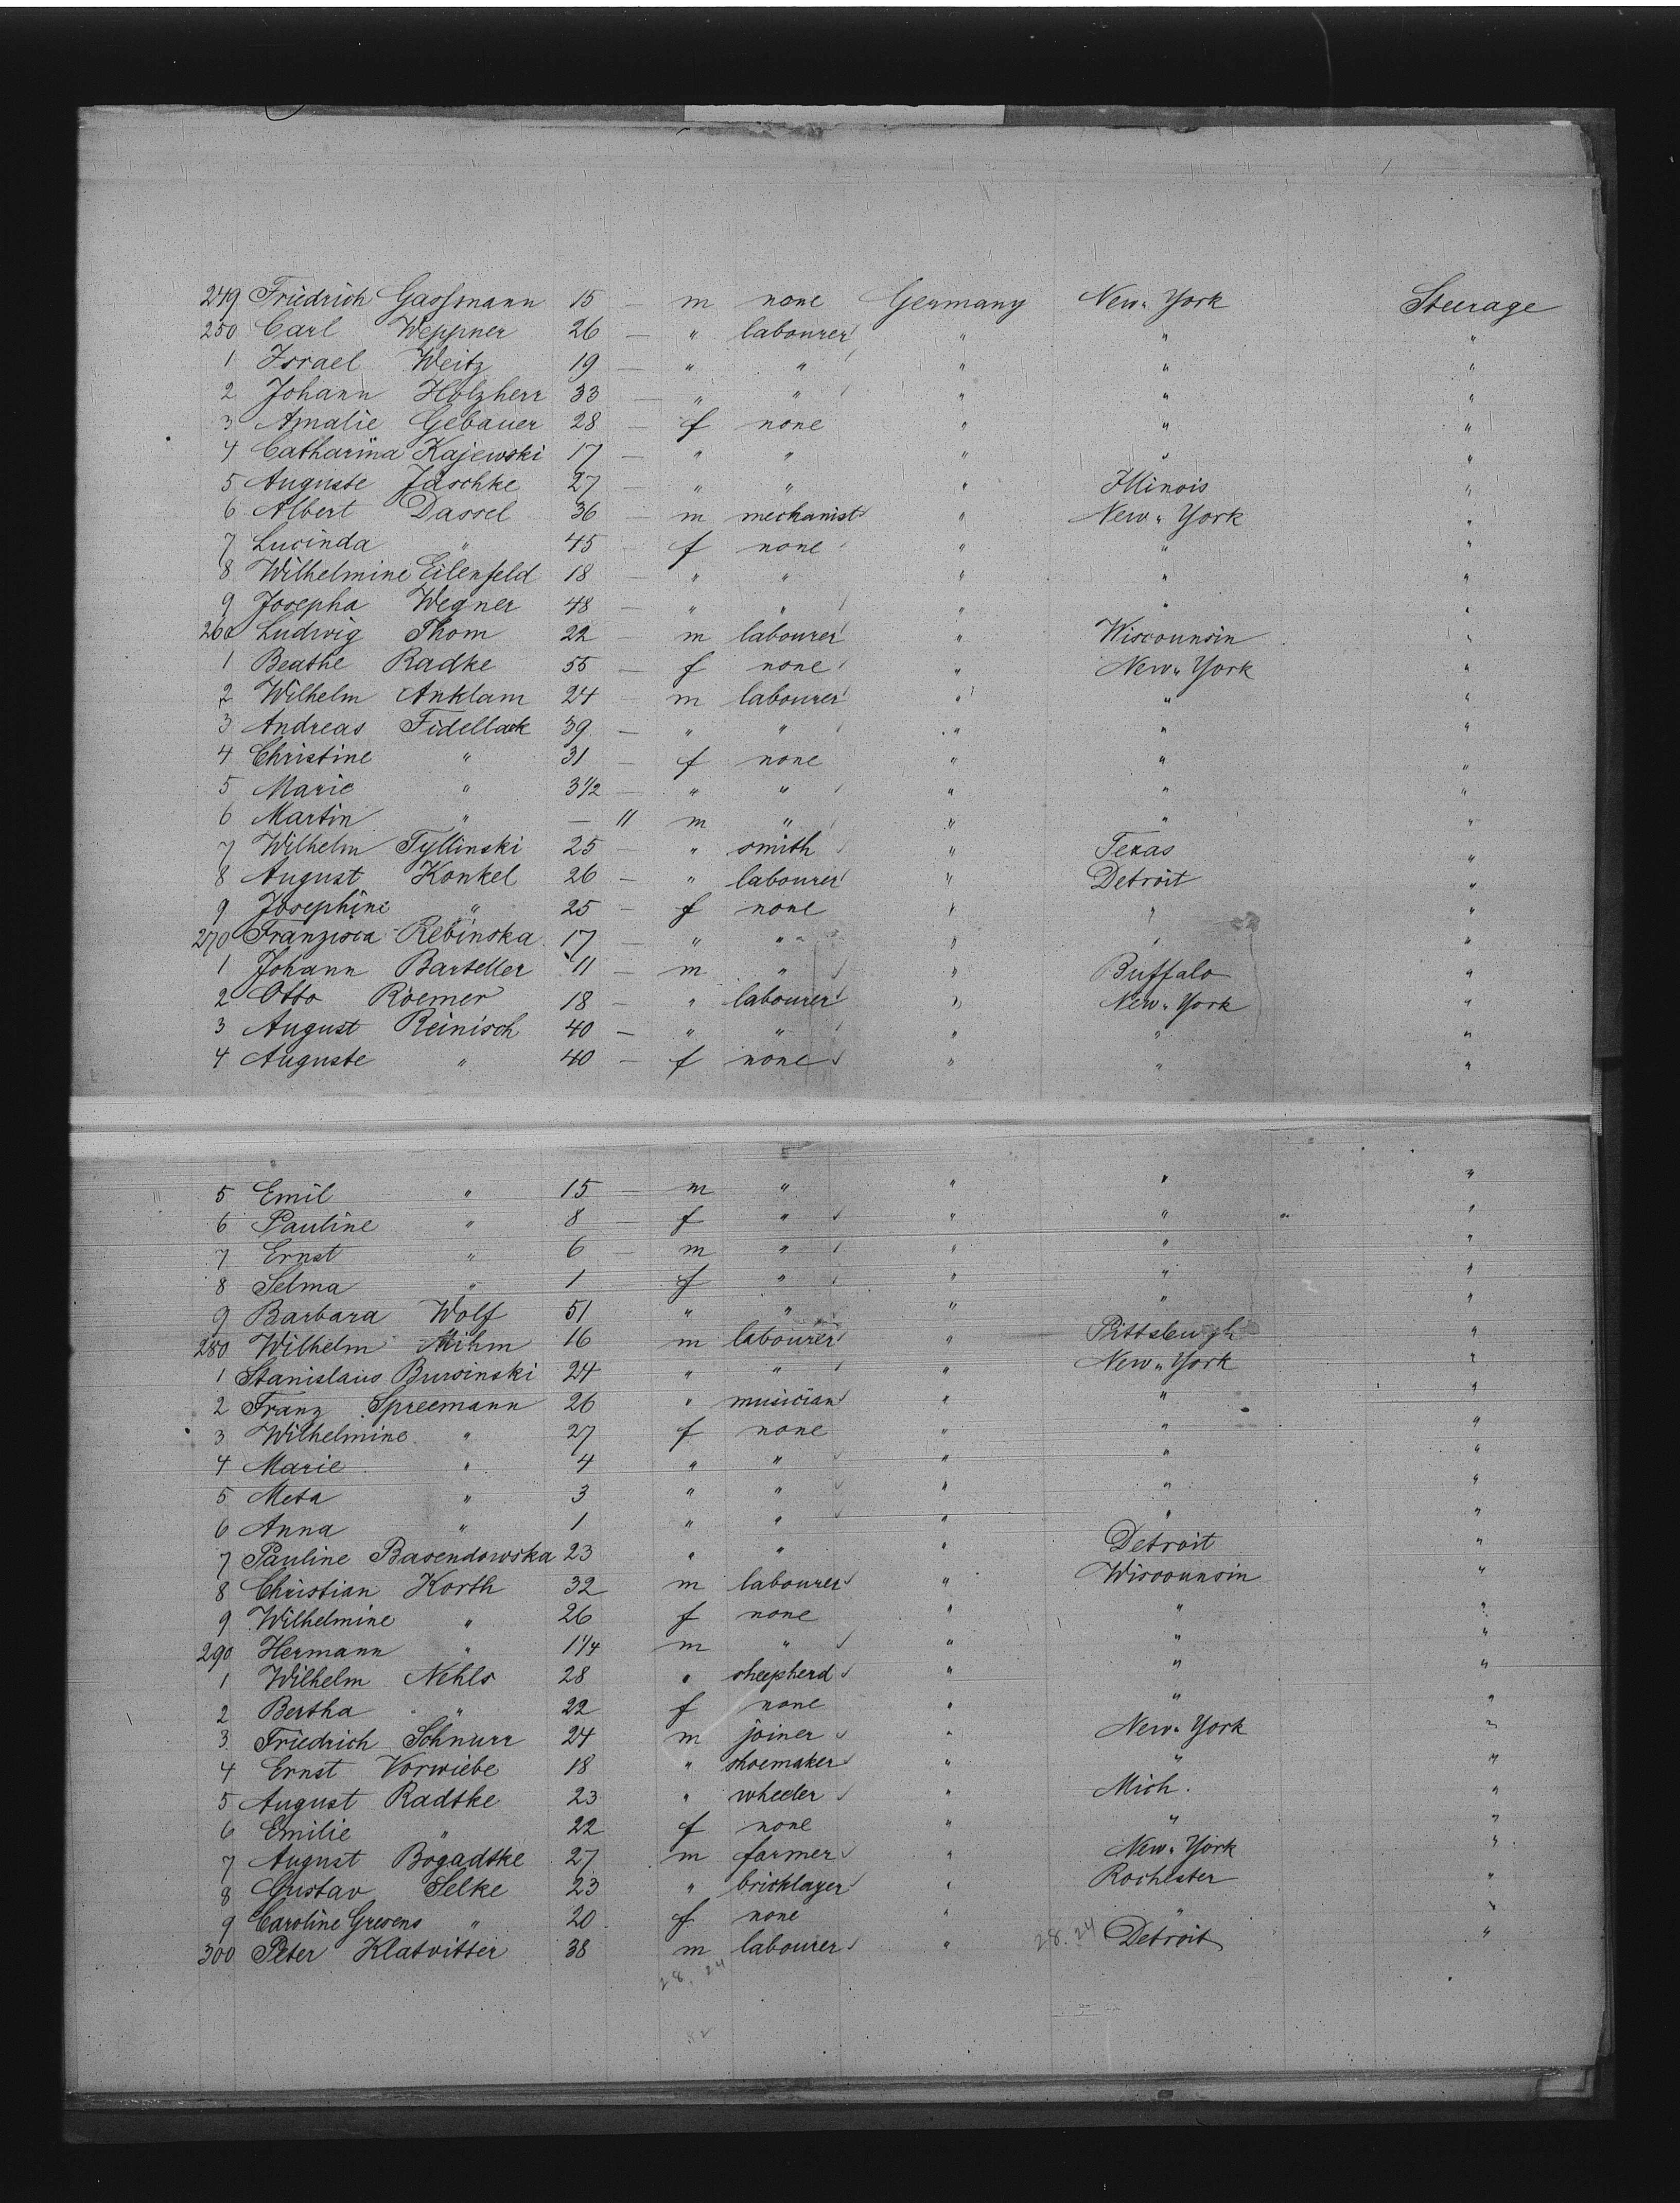 249 Friedrich Gassmann 15 — m none Germany New-York Steerage
250 Carl Weppner 26 — " labourer " " "
1 Israel Weitz 19 — " " " " "
2 Johann Holzherr 33 — " " " " "
3 Amalie Gebauer 28 — f none " " "
4 Catharina Kajewski 17 — " " " " "
5 Auguste Jäschke 27 — " " " Illinois "
6 Albert Dassel 36 — m mechanist " New-York "
7 Lucinda " 45 — f none " " "
8 Wilhelmine Eilenfeld 18 — " " " " "
9 Josepha Wegner 48 — " " " " "
260 Ludwig Thom 22 — m labourer " Wiscounsin "
1 Beathe Radke 55 — f none " New-York "
2 Wilhelm Anklam 24 — m labourer " " "
3 Andreas Fidellack 39 — " " " " "
4 Christine " 31 — f none " " "
5 Marie " 3 1/2 — " " " " "
6 Martin " — 11 m " " " "
7 Wilhelm Tyllinski 25 — " smith " Texas "
8 August Konkel 26 — " labourer " Detroit "
9 Josephine " 25 — f none " " "
270 Franzisca Rebinska 17 — " " " " "
1 Johann Barteller 11 — m " " Buffalo "
2 Otto Roemer 18 — " labourer " New-York "
3 August Reinisch 40 — " " " " "
4 Auguste " 40 — f none " " "
5 Emil " 15 — m " " " "
6 Pauline " 8 — f " " " "
7 Ernst " 6 — m " " " "
8 Selma " 1 f " " " "
9 Barbara Wolf 51 " " " " "
280 Wilhelm Mihm 16 m labourer " Pittsburgh "
1 Stanislaus Bursinski 24 " " " New-York "
2 Franz Spreemann 26 " musician " " "
3 Wilhelmine " 27 f none " " "
4 Marie " 4 " " " " "
5 Meta " 3 " " " " "
6 Anna " 1 " " " " "
7 Pauline Basendowska 23 " " " Detroit "
8 Christian Korth 32 m labourer " Wiscounsin "
9 Wilhelmine " 26 f none " " "
290 Hermann " 1 1/4 m " " " "
1 Wilhelm Nehls 28 " sheepherd " " "
2 Bertha " 22 f none " " "
3 Friedrich Schnurr 24 m joiner " New-York "
4 Ernst Vorwiebe 18 " shoemaker " " "
5 August Radtke 23 " wheeler " Mich. "
6 Emilie " 22 f none " " "
7 August Bogadtke 27 m farmer " New-York "
8 Gustav Selke 23 " bricklayer " Rochester "
9 Caroline Gresens " 20 f none " " "
300 Peter Klatvitter 38 m labourer " 28.24 Detroit "
28. 24